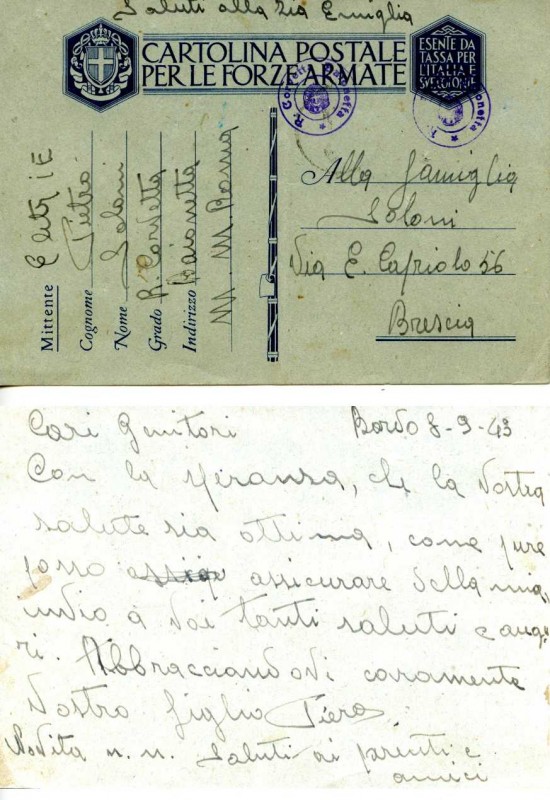 Saluti alla zia Emiglia
CARTOLINA POSTALE
PER LE FORZE ARMATE
ESENTE DA
TASSA PER
L'ITALIA E
Mittente
Cognome Pietro
Nome Soloni
Grado R. Corvetta
Indirizzo Baionetta
M. M. Roma
Alla famiglia
Soloni
Via E. Capriolo 56
Brescia
Cari Genitori Bordo 8-9-43
Con la speranza, che la vostra
salute sia ottima, come pure
posso assicurare della mia,
indio a voi tanti saluti e augu
ri. Abbracciandovi caramente
Vostro figlio Piero
Novita n. n. Saluti ai parenti e
amici